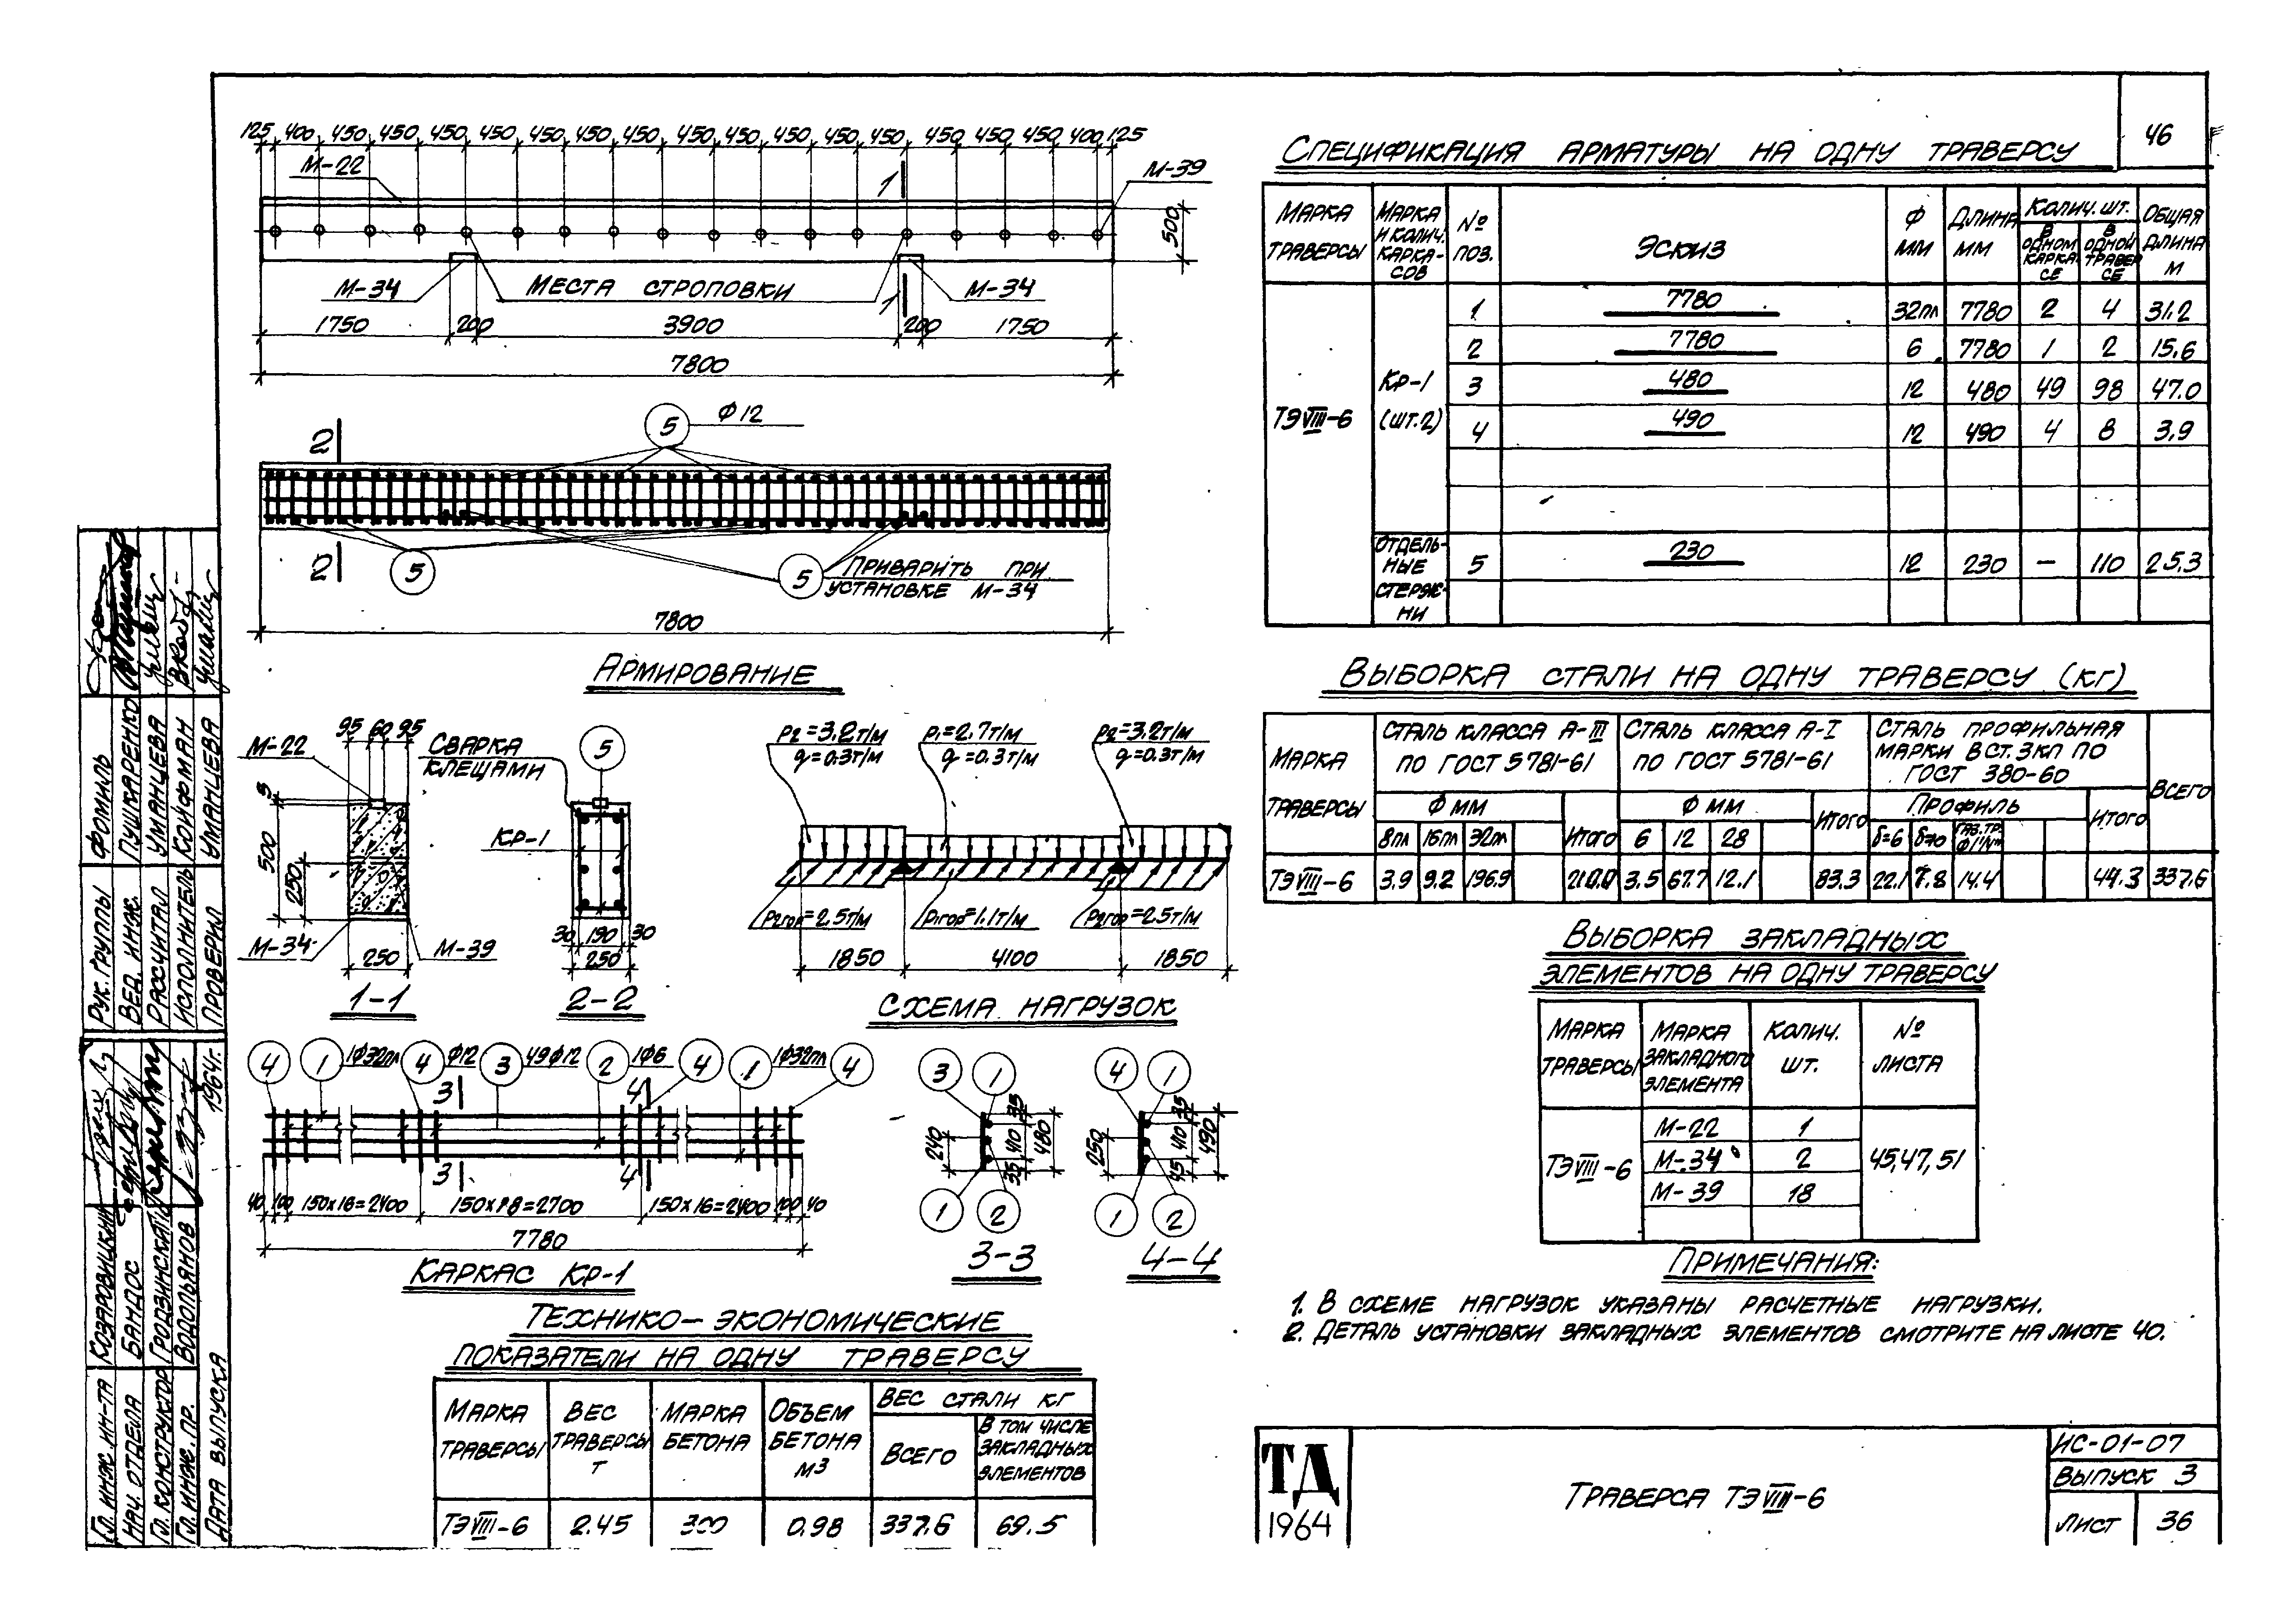 46
125 400 450 450 450 450 450 450 450 450 450 450 450 450 450 450 450 400 125
М-22
1
М-39
500
М-34
МЕСТА СТРОПОВКИ
М-34
1
1750 200 3900 200 1750
7800
2
5 Ф12
2
5
5 ПРИВАРИТЬ ПРИ
УСТАНОВКЕ М-34
7800
АРМИРОВАНИЕ
95 60 95
М-22
5
500
250
М-34
М-39
250
1-1
СВАРКА
КЛЕЩАМИ
5
КР-1
30 190 30
250
2-2
P2=3.2т/м P1=2.7т/м P2=3.2т/м
q=0.3т/м q=0.3т/м q=0.3т/м
P2гор=2.5т/м P1гор=1.1т/м P2гор=2.5т/м
1850 4100 1850
СХЕМА НАГРУЗОК
4 1 1Ф32пл 4 Ф12 3 49Ф12 2 1Ф6 4 1 1Ф32пл 4
3 4
3 4
40 100 150х16=2400 150х18=2700 150х16=2400 100 40
7780
КАРКАС КР-1
3 1
240
35
410
35
480
1 2
3-3
4 1
250
35
410
45
490
1 2
4-4
ТЕХНИКО-ЭКОНОМИЧЕСКИЕ
ПОКАЗАТЕЛИ НА ОДНУ ТРАВЕРСУ
МАРКА ТРАВЕРСЫ
ВЕС ТРАВЕРСЫ Т
МАРКА БЕТОНА
ОБЪЕМ БЕТОНА М3
ВЕС СТАЛИ КГ
ВСЕГО
В ТОМ ЧИСЛЕ ЗАКЛАДНЫХ ЭЛЕМЕНТОВ
ТЭVIII-6 2.45 300 0.98 337.6 69.5
СПЕЦИФИКАЦИЯ АРМАТУРЫ НА ОДНУ ТРАВЕРСУ
МАРКА ТРАВЕРСЫ
МАРКА И КОЛИЧ. КАРКА-СОВ
№ ПОЗ.
ЭСКИЗ
Ф ММ
ДЛИНА ММ
КОЛИЧ. ШТ.
В ОДНОМ КАРКА-СЕ
В ОДНОЙ ТРАВЕР СЕ
ОБЩАЯ ДЛИНА М
ТЭVIII-6
КР-1
(ШТ.2)
1 7780 32пл 7780 2 4 31.2
2 7780 6 7780 1 2 15.6
3 480 12 480 49 98 47.0
4 490 12 490 4 8 3.9
ОТДЕЛЬ-
НЫЕ
СТЕРЖ-
НИ
5 230 12 230 — 110 25.3
ВЫБОРКА СТАЛИ НА ОДНУ ТРАВЕРСУ (КГ)
МАРКА ТРАВЕРСЫ
СТАЛЬ КЛАССА А-III
ПО ГОСТ 5781-61
СТАЛЬ КЛАССА А-I
ПО ГОСТ 5781-61
СТАЛЬ ПРОФИЛЬНАЯ
МАРКИ В СТ. 3КП ПО
ГОСТ 380-60
ВСЕГО
Ф ММ ИТОГО Ф ММ ИТОГО ПРОФИЛЬ ИТОГО
8пл 16пл 32пл 6 12 28 δ=6 δ=10 ГАЗ. ТР.
ТЭVIII-6 3.9 9.2 196.9 210.0 3.5 67.7 12.1 83.3 22.1 7.8 14.4 44.3 337.6
ВЫБОРКА ЗАКЛАДНЫХ
ЭЛЕМЕНТОВ НА ОДНУ ТРАВЕРСУ
МАРКА ТРАВЕРСЫ
МАРКА ЗАКЛАДНОГО ЭЛЕМЕНТА
КОЛИЧ. ШТ.
№ ЛИСТА
ТЭVIII-6
М-22 1
М-34 2
М-39 18
45,47,51
ПРИМЕЧАНИЯ:
1. В СХЕМЕ НАГРУЗОК УКАЗАНЫ РАСЧЕТНЫЕ НАГРУЗКИ.
2. ДЕТАЛЬ УСТАНОВКИ ЗАКЛАДНЫХ ЭЛЕМЕНТОВ СМОТРИТЕ НА ЛИСТЕ 40.
ТД
1964
ТРАВЕРСА ТЭVIII-6
ИС-01-07
ВЫПУСК 3
ЛИСТ 36
РУК. ГРУППЫ ФОМИЛЬ
ВЕД. ИНЖ. ПУШКАРЕНКО
РАССЧИТАЛ УМАНЦЕВА
ИСПОЛНИТЕЛЬ КОЙФМАН
ПРОВЕРИЛ УМАНЦЕВА
ГЛ. ИНЖ. ИН-ТА КОЗАРОВИЦКИЙ
НАЧ. ОТДЕЛА БАНДОС
ГЛ. КОНСТРУКТОР ГРОДЗИНСКАЯ
ГЛ. ИНЖ. ПР. ВОДОПЬЯНОВ
ДАТА ВЫПУСКА 1964г.